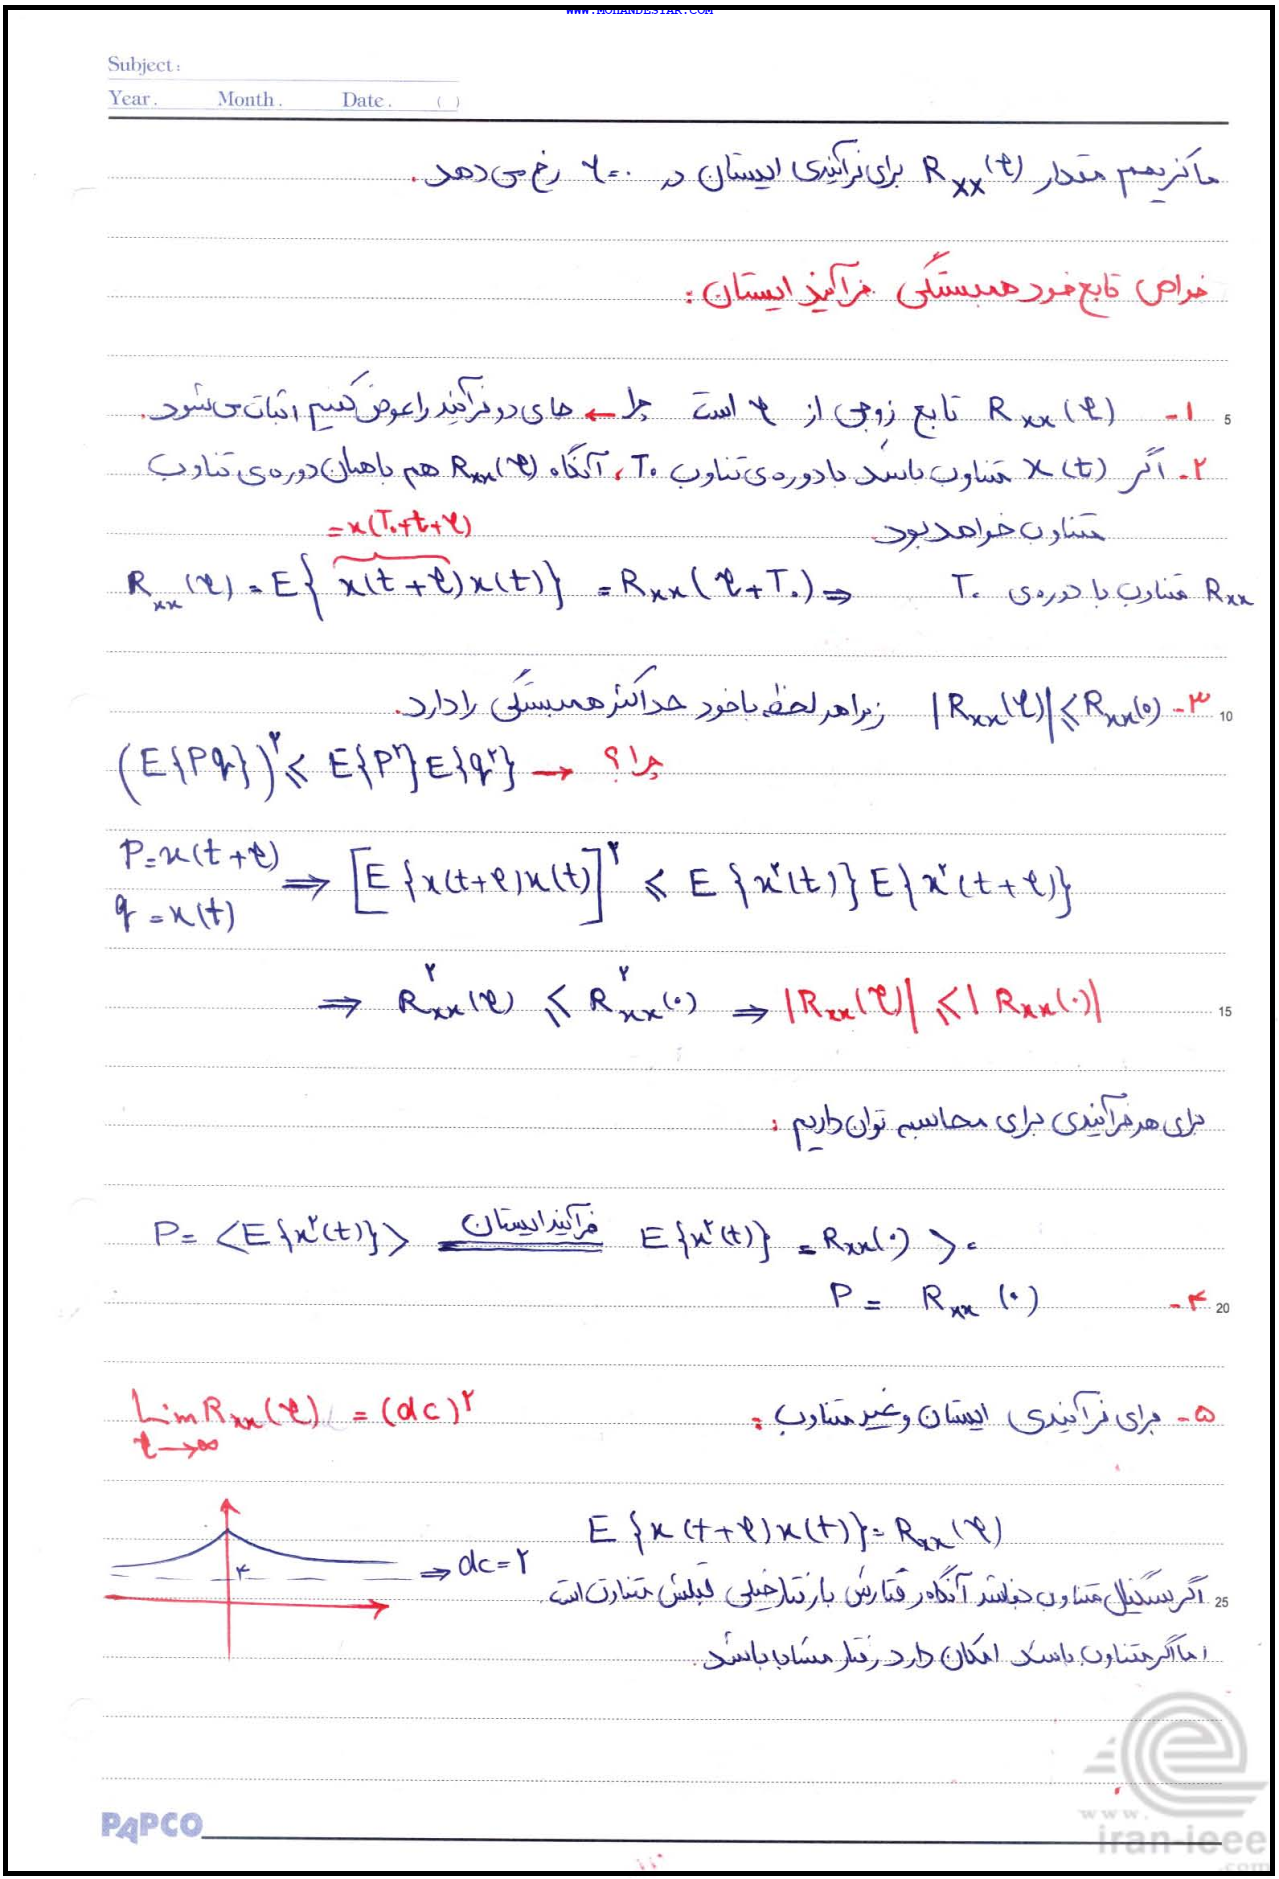 WWW.MOHANDESYAR.COM
Subject:
Year. Month. Date. ( )
ماکزیمم مقدار Rxx(τ) برای فرآیندی ایستان در τ=۰ رخ می‌دهد.
خواص تابع خودهمبستگی فرآیند ایستان:
۱- Rxx(τ) تابع زوجی از τ است چرا ← جای دو فرآیند را عوض کنیم اثبات می‌شود. 5
۲- اگر x(t) متناوب باشد با دوره‌ی تناوب T۰، آنگاه Rxx(τ) هم با همان دوره‌ی تناوب
متناوب خواهد بود.
=x(T۰+t+τ)
Rxx(τ) = E{x(t+τ)x(t)} = Rxx(τ+T۰) ⇒ Rxx متناوب با دوره‌ی T۰
۳- |Rxx(τ)| ≤ Rxx(0) زیرا هر لحظه با خود حداکثر همبستگی را دارد. 10
(E{Pq})² ≤ E{P²}E{q²} → چرا؟
P=x(t+τ)
q=x(t) ⇒ [E{x(t+τ)x(t)}]² ≤ E{x²(t)}E{x²(t+τ)}
⇒ R²xx(τ) ≤ R²xx(۰) ⇒ |Rxx(τ)| ≤ |Rxx(۰)| 15
برای هر فرآیندی برای محاسبه توان داریم:
P = <E{x²(t)}> فرآیند ایستان = E{x²(t)} = Rxx(۰) > ۰
۴- P = Rxx(۰) 20
۵- برای فرآیندی ایستان و غیر متناوب: Lim Rxx(τ) = (dc)²
τ→∞
E{x(t+τ)x(t)} = Rxx(τ)
۴ ⇒ dc=۲
اگر سیگنال متناوب نباشد آنگاه رفتارش با رفتار خیلی قبلش متفاوت است. 25
اما اگر متناوب باشد امکان دارد رفتار مشابه باشد.
PAPCO
www.
iran-ieee
.com